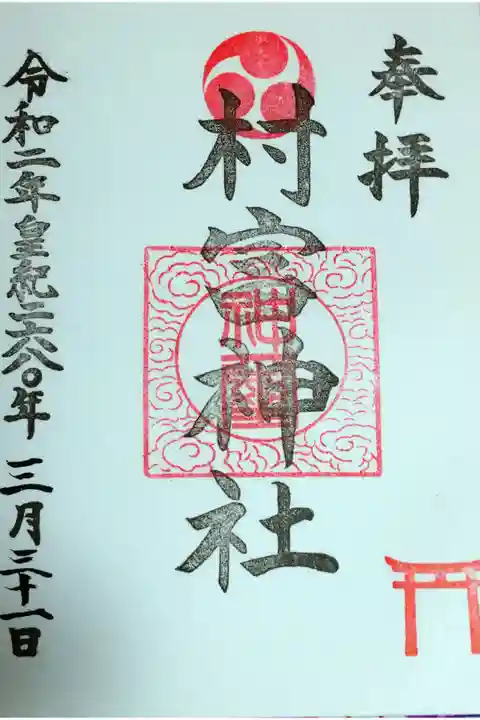 奉拝
村富神社
令和二年皇紀二六八〇年三月三十一日